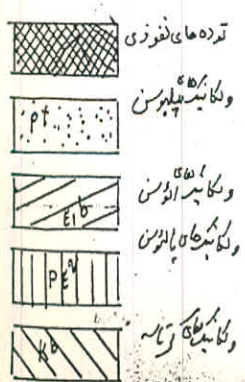 توده های نفوذی
ولکانیکهای پلیوسن
pt
ولکانیک های ائوسن
E1b
ولکانیکهای پالئوسن
PE
ولکانیکهای کرتاسه
Kb